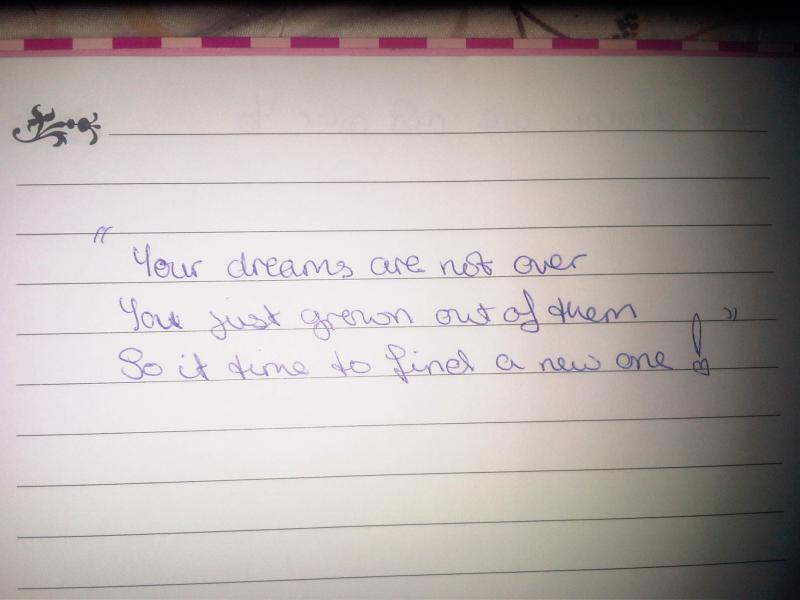 "Your dreams are not over
You just grown out of them
So it time to find a new one!"